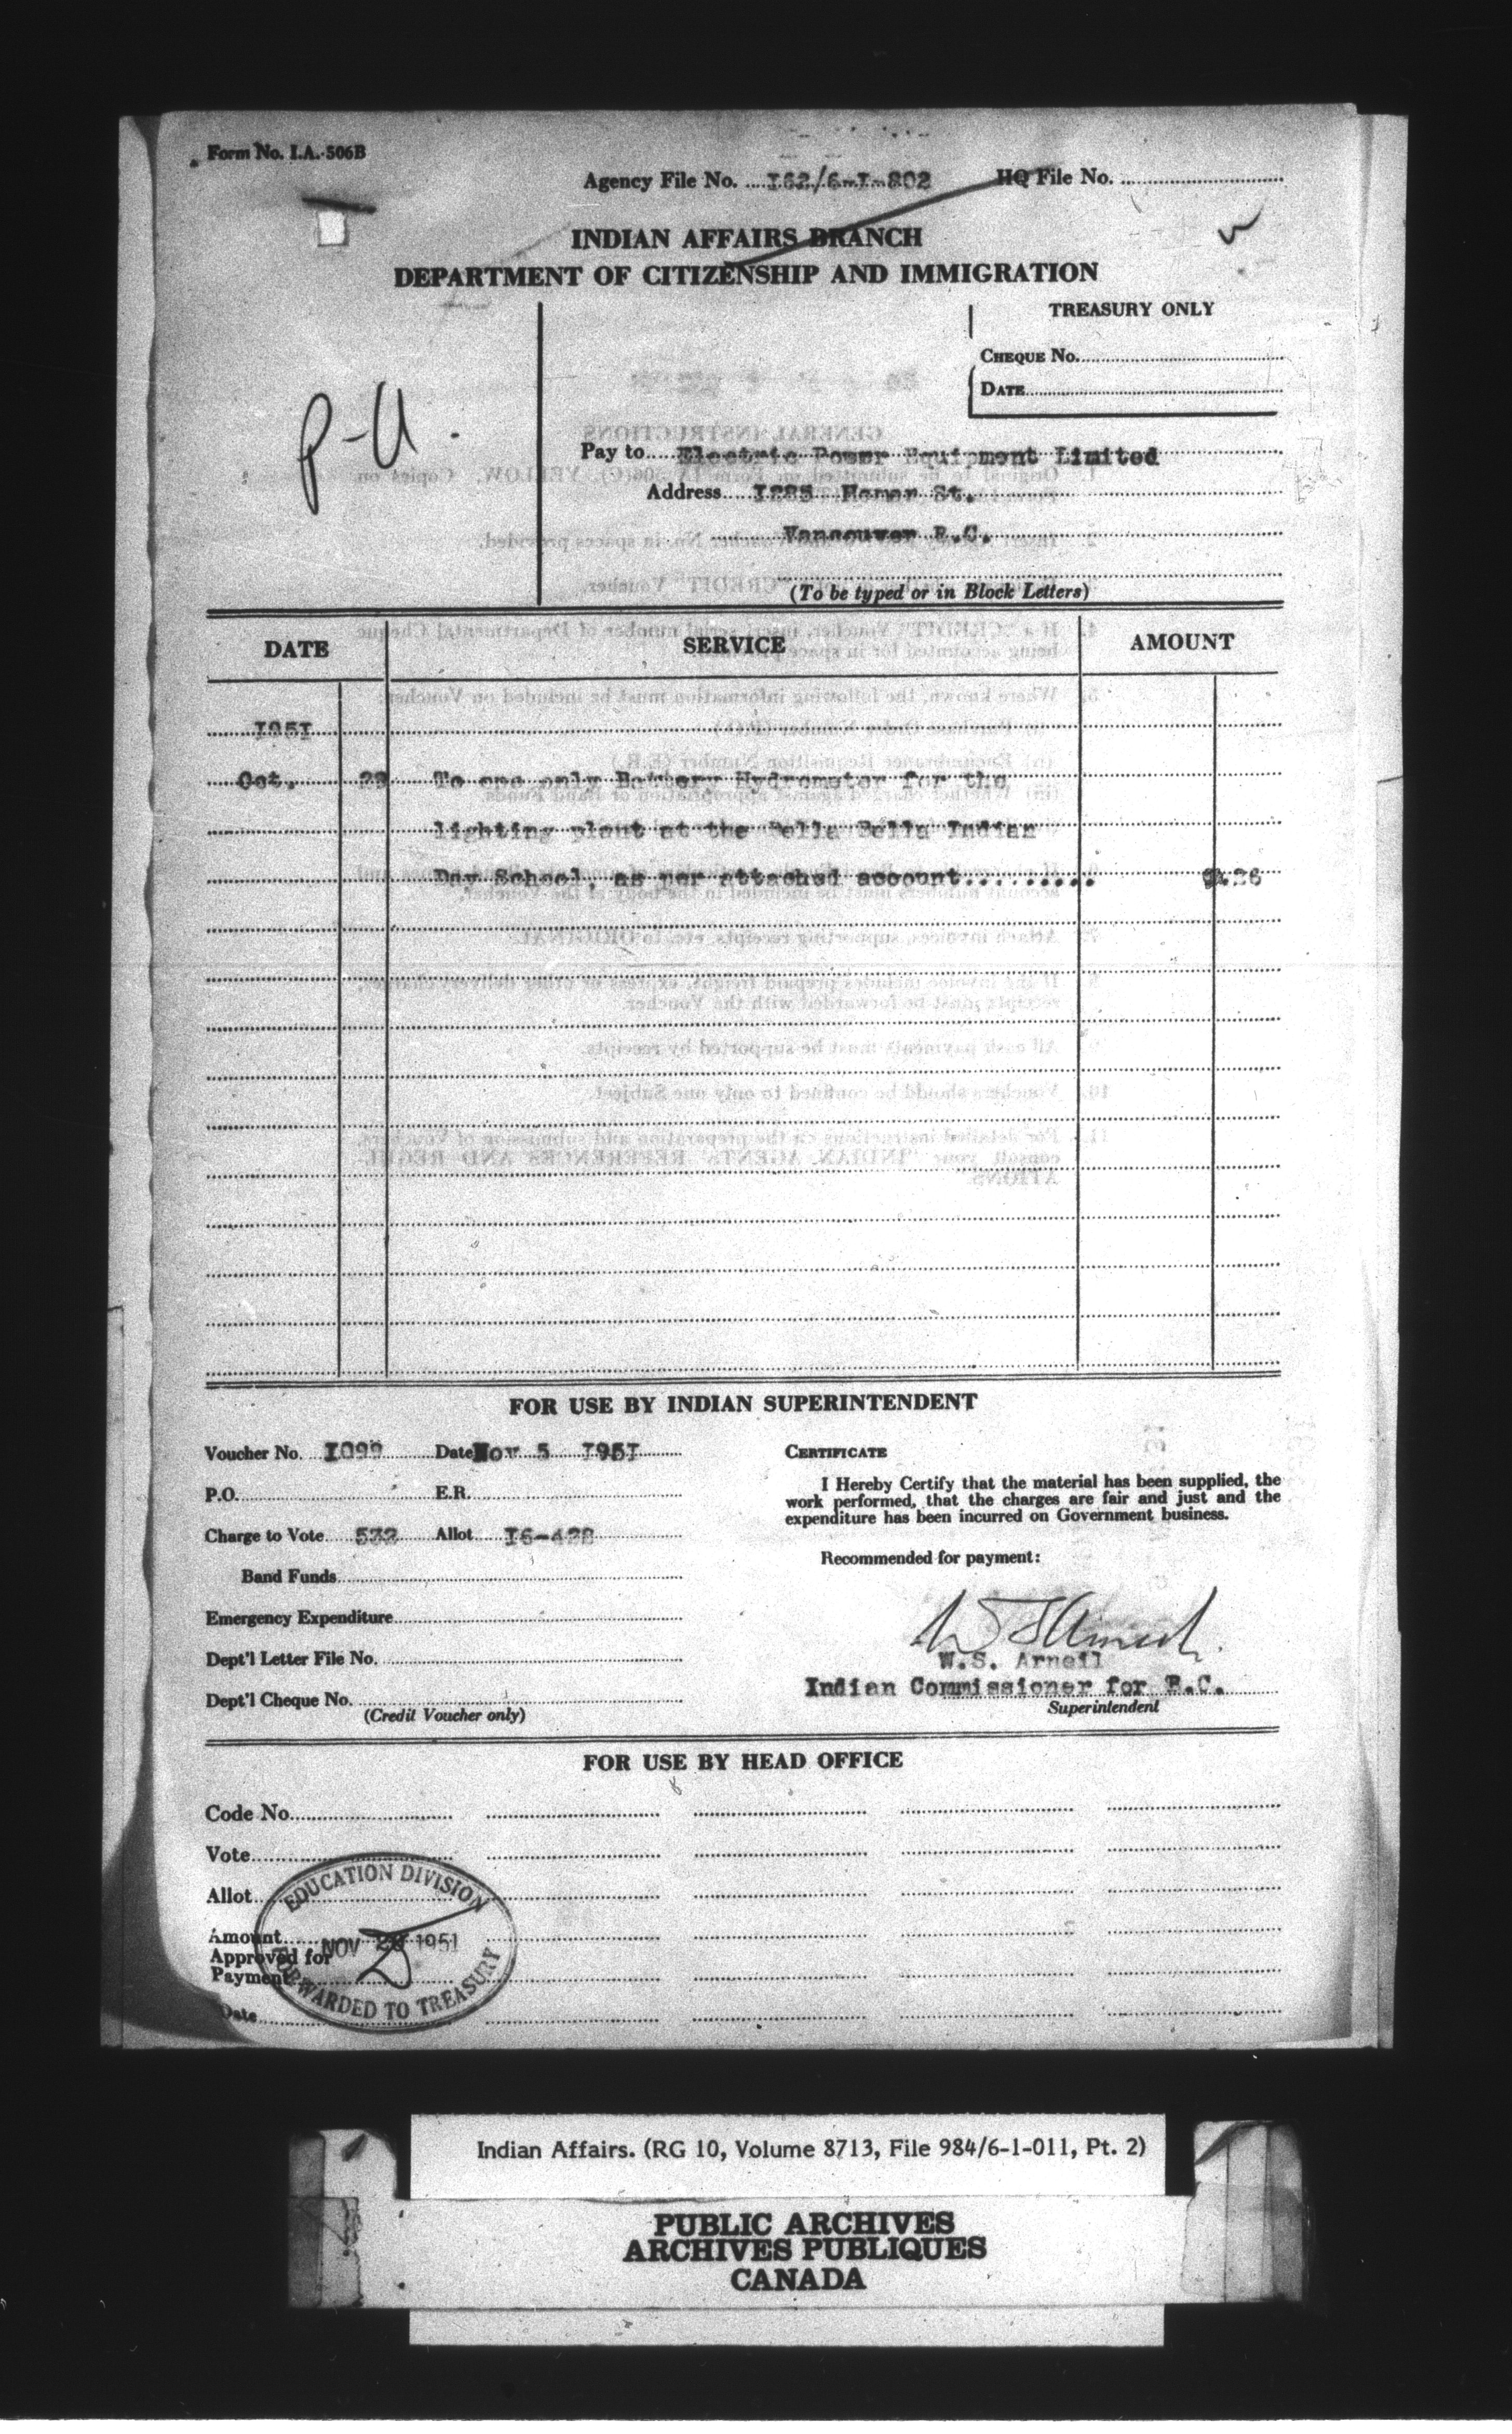 Form No. I.A. 506B
Agency File No. I62/6-I-802 HQ File No.
INDIAN AFFAIRS BRANCH
DEPARTMENT OF CITIZENSHIP AND IMMIGRATION
TREASURY ONLY
CHEQUE No.
DATE
P-U.
Pay to Electric Power Equipment Limited
Address I285 Homer St.
Vancouver B.C.
(To be typed or in Block Letters)
DATE SERVICE AMOUNT
I95I
Oct. 29 To one only Battery Hydrometer for the
lighting plant at the Bella Bella Indian
Day School, as per attached account.........
FOR USE BY INDIAN SUPERINTENDENT
Voucher No. I099 Date Nov 5 I95I
P.O. E.R.
Charge to Vote 532 Allot I6-428
Band Funds
Emergency Expenditure
Dept'l Letter File No.
Dept'l Cheque No.
(Credit Voucher only)
CERTIFICATE
I Hereby Certify that the material has been supplied, the
work performed, that the charges are fair and just and the
expenditure has been incurred on Government business.
Recommended for payment:
W.S. Arneil
W.S. Arneil
Indian Commissioner for B.C.
Superintendent
FOR USE BY HEAD OFFICE
Code No.
Vote
Allot
Amount
Approved for
Payment
Date
EDUCATION DIVISION
NOV 1951
FORWARDED TO TREASURY
Indian Affairs. (RG 10, Volume 8713, File 984/6-1-011, Pt. 2)
PUBLIC ARCHIVES
ARCHIVES PUBLIQUES
CANADA